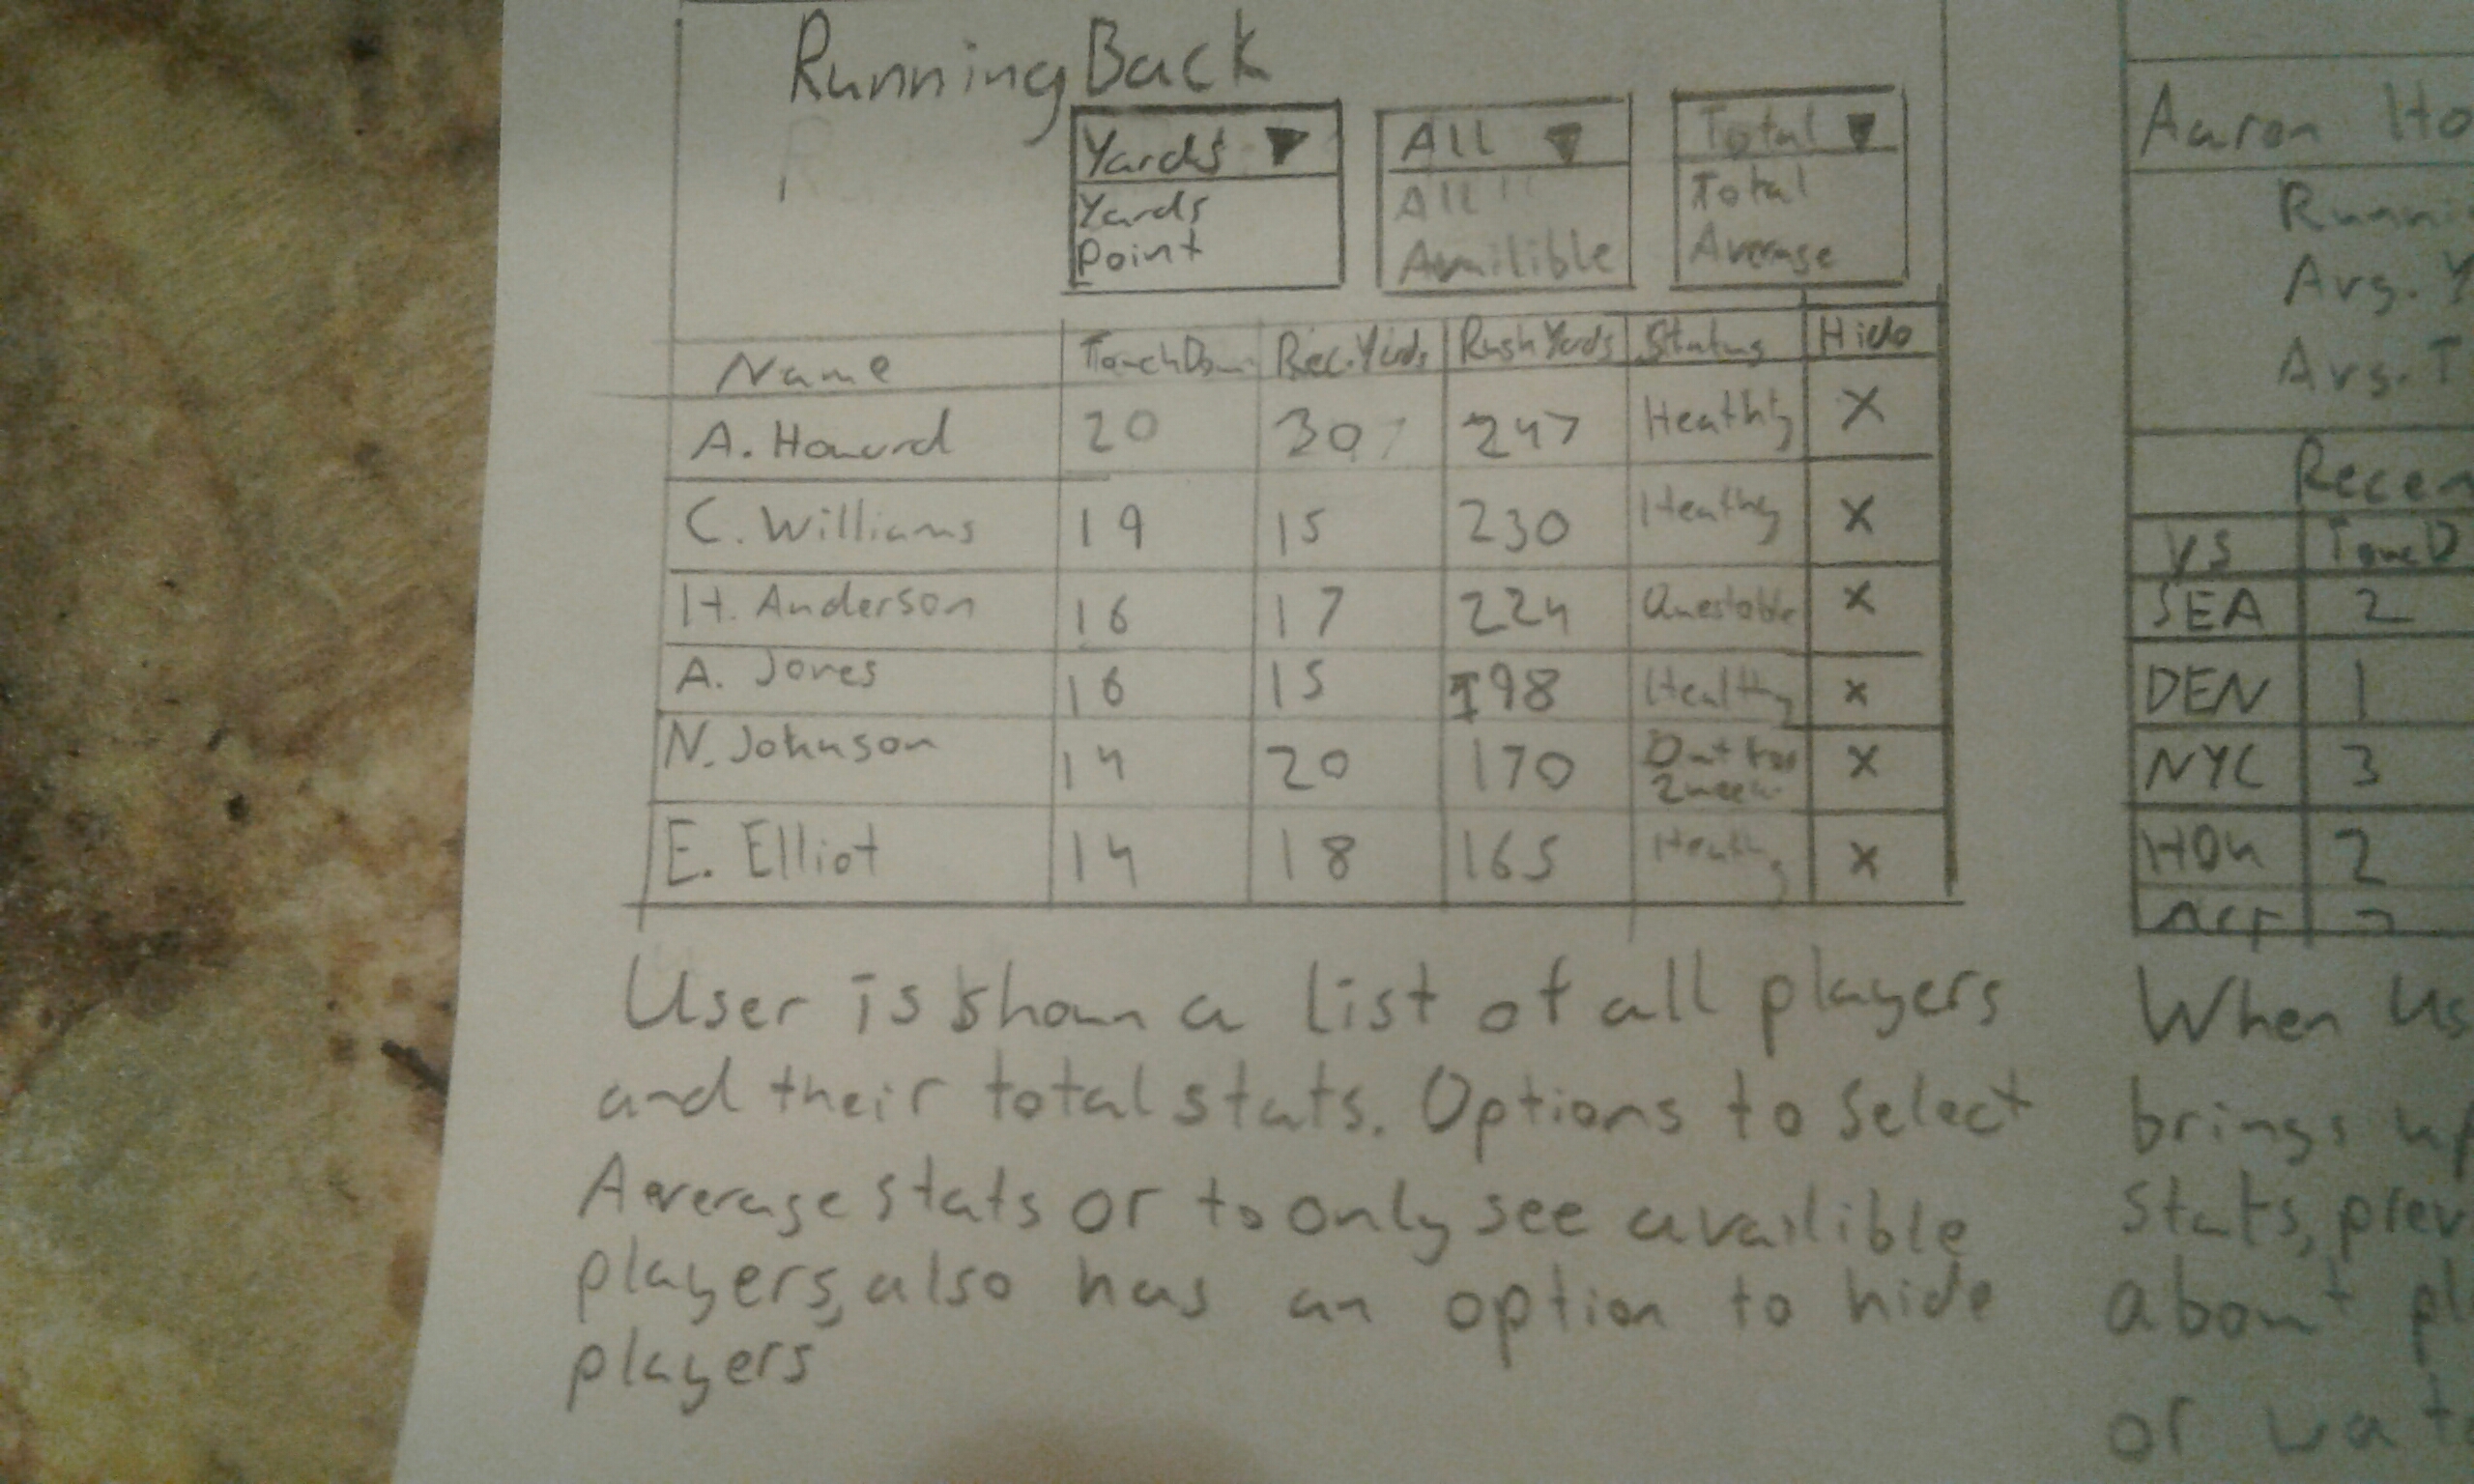 Running Back
Yards All Total
Yards All Total
Point Availible Average
Name TouchDown Rec.Yards Rush Yards Status Hide
A. Howard 20 30 247 Heathy X
C. Williams 19 15 230 Heathy X
H. Anderson 16 17 224 X
A. Jones 16 15 198 Healthy X
N. Johnson 14 20 170 Out for X
2 week
E. Elliot 14 18 165 Heathy X
User is shown a list of all players
and their total stats. Options to select
Average stats or to only see availible
players, also has an option to hide
players
Aaron Ho
Runni
Avg. Y
Avg. T
Recen
VS
SEA 2
DEN 1
NYC 3
HOU 2
When us
brings up
stats, prev
about pl
or wat